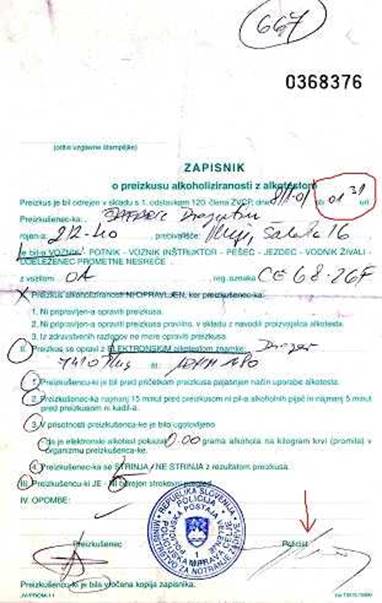 667
0368376
(odtis vzglavne štampiljke)
ZAPISNIK
o preizkusu alkoholiziranosti z alkotestom
Preizkus je bil odrejen v skladu s 1. odstavkom 120. člena ZVCP, dne 8/1-01 ob 01 31 uri.
Preizkušenec-ka:
rojen-a 2/12-40 prebivališče: Šaleška 16
je bil-a VOZNIK - POTNIK - VOZNIK INŠTRUKTOR - PEŠEC - JEZDEC - VODNIK ŽIVALI -
UDELEŽENEC PROMETNE NESREČE
z vozilom OA reg. oznaka CE 68-26F
I. Preizkus alkoholiziranosti NI OPRAVLJEN, ker preizkušenec-ka:
1. Ni pripravljen-a opraviti preizkusa.
2. Ni pripravljen-a opraviti preizkusa pravilno, v skladu z navodili proizvajalca alkotesta.
3. Iz zdravstvenih razlogov ne more opraviti preizkusa.
II. Preizkus se opravi z ELEKTRONSKIM alkotestom znamke: Drager
7410 Plus št.
1. Preizkušencu-ki je bil pred pričetkom preizkusa pojasnjen način uporabe alkotesta.
2. Preizkušenec-ka najmanj 15 minut pred preizkusom ni pil-a alkoholnih pijač in najmanj 5 minut
pred preizkusom ni kadil-a.
3. V prisotnosti preizkušenca-ke je bilo ugotovljeno
da je elektronski alkotest pokazal 0.00 grama alkohola na kilogram krvi (promila) v
organizmu preizkušenca-ke.
4. Preizkušenec-ka se STRINJA / NE STRINJA z rezultatom preizkusa.
III. Preizkušencu-ki JE - NI odrejen strokovni pregled.
IV. OPOMBE:
REPUBLIKA SLOVENIJA
MINISTRSTVO ZA NOTRANJE ZADEVE
POLICIJA
POLICIJSKA POSTAJA VELENJE
1
Preizkušenec
Policist
Preizkušencu-ki je bila vročena kopija zapisnika.